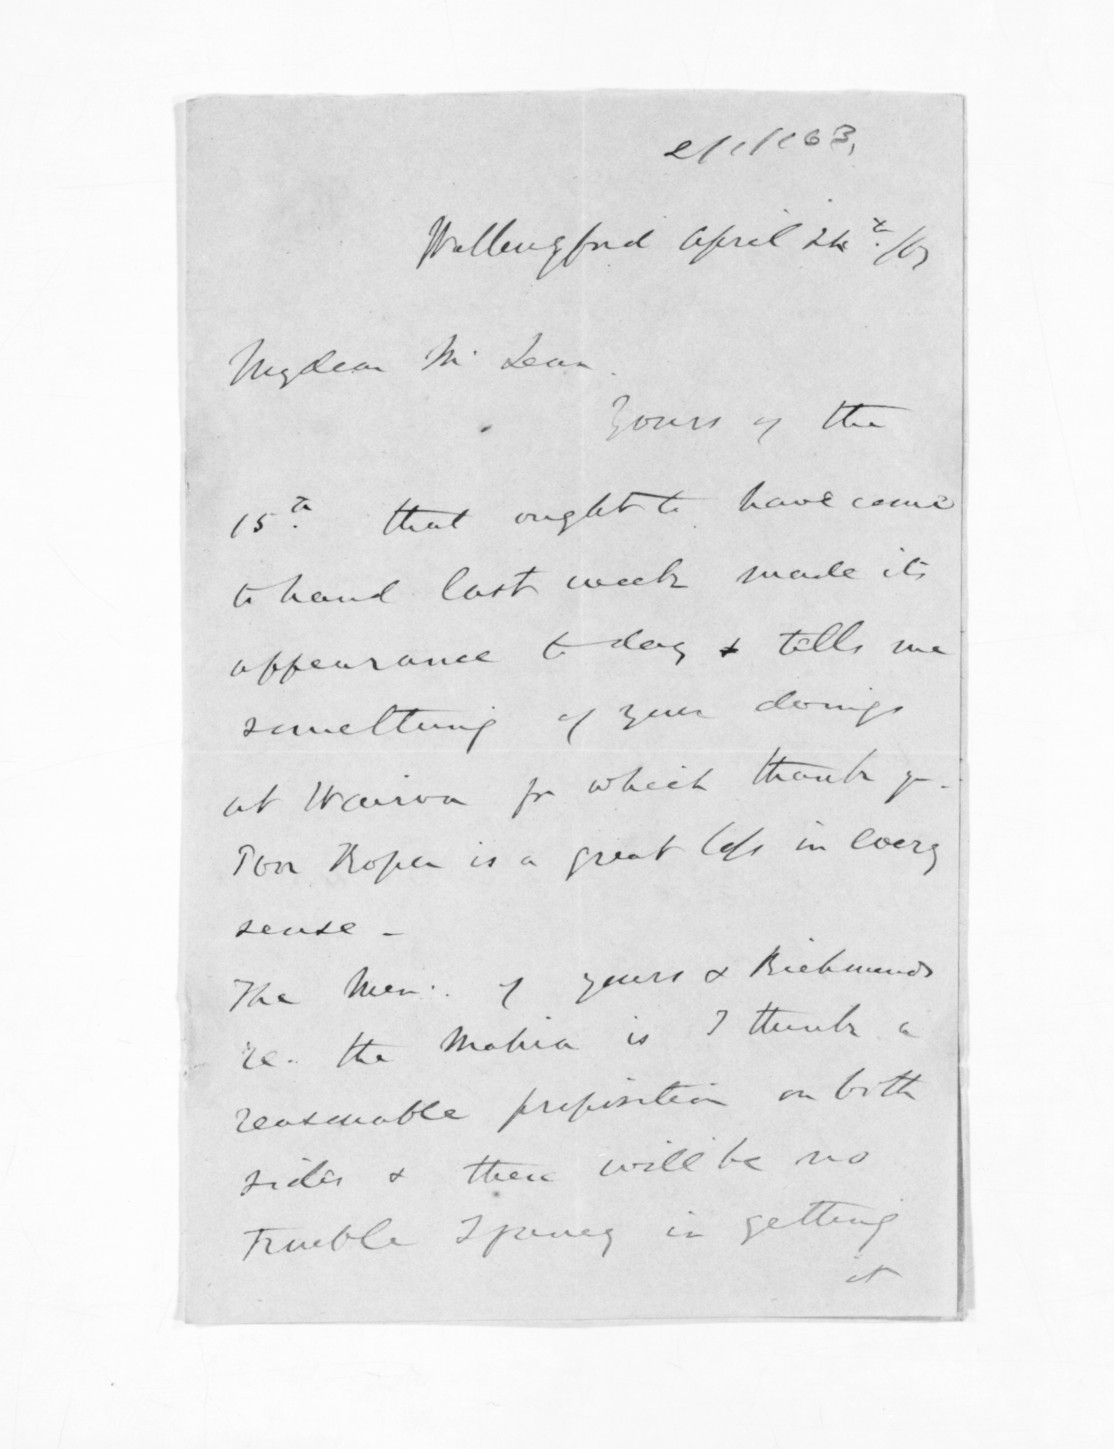 Wallingford April 24th /67
My dear McLean.
Yours of the
15th that ought to have come
to hand last week made its
appearance to day & tells me
something of your doings
at Wairoa for which thank you.
Poor is a great loss in every
sense -
The Mem. of yours & Richmonds
re. the Mahia is I think a
reasonable proposition on both
sides & there will be no
trouble I fancy in getting
it